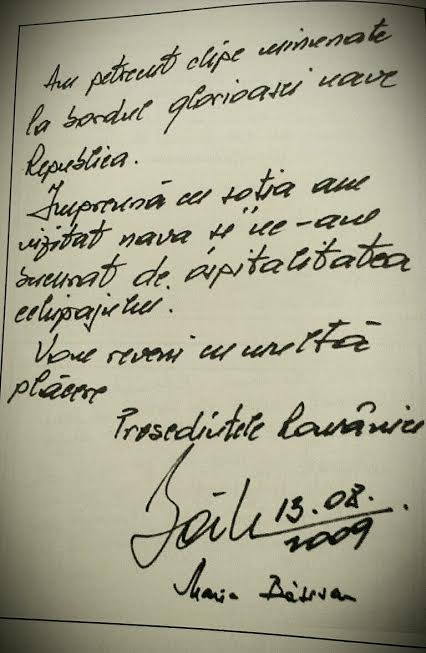 Am petrecut clipe minunate
la bordul glorioasei nave
Republica.
Împreună cu soția am
vizitat nava și ne-am
bucurat de ospitalitatea
echipajului.
Vom reveni cu multă
plăcere
Președintele României
13.08.
2009
Maria Băsescu